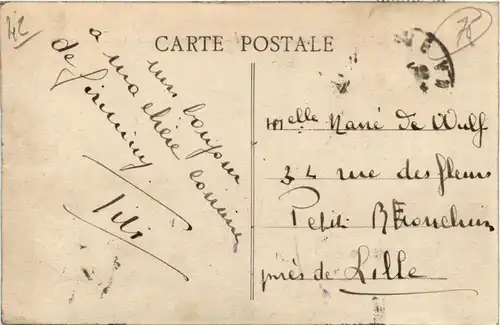 42
75
CARTE POSTALE
un bonjour
à ma chère cousine
de Firminy
Lili
Melle Marié De Wulf
34 rue des fleurs
Petit Ronchin
près de Lille